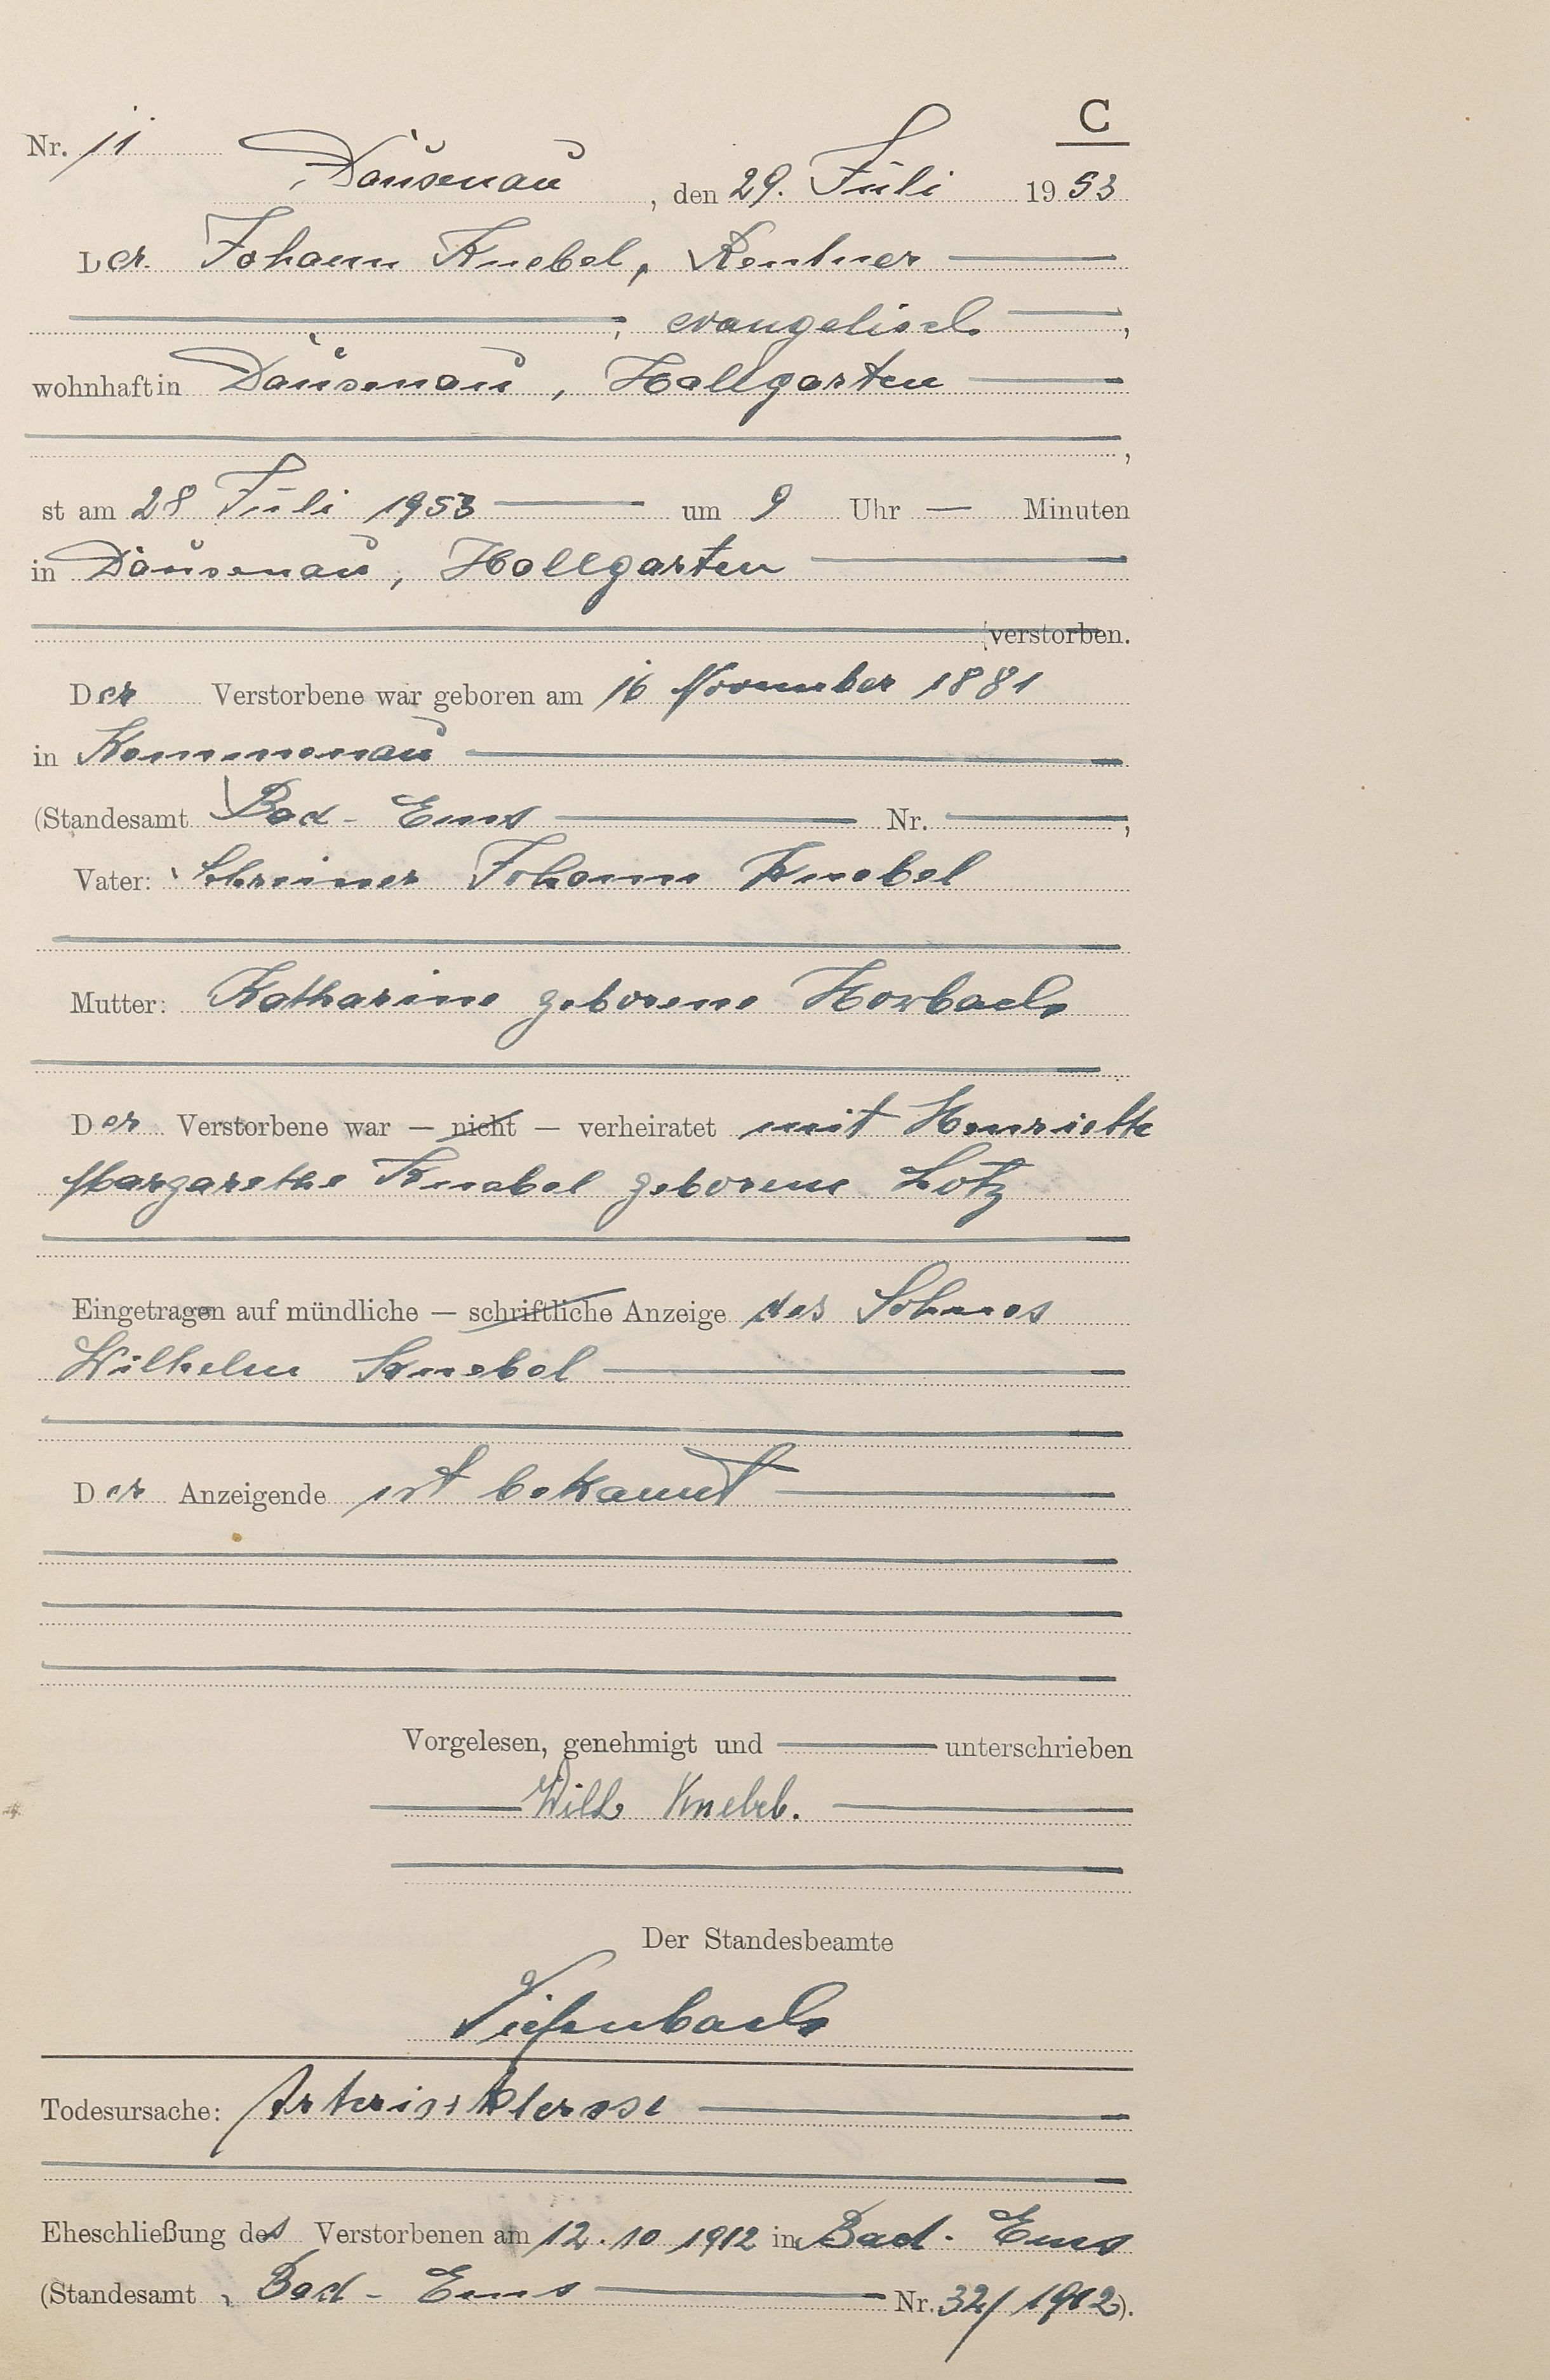 C
Nr. 11
Dausenau, den 29. Juli 1953
Der Johann Knebel, Rentner
, evangelisch,
wohnhaft in Dausenau, Hallgarten
,
st am 28 Juli 1953 um 9 Uhr — Minuten
in Dausenau, Hallgarten
verstorben.
Der Verstorbene war geboren am 16 November 1881
in Kemmenau
(Standesamt Bad-Ems Nr. ,
Vater: Schreiner Johann Knebel
Mutter: Katharine geborene Horbach
Der Verstorbene war — nicht — verheiratet mit Henriette
Margarethe Knebel geborene Lotz
Eingetragen auf mündliche — schriftliche Anzeige des Sohnes
Wilhelm Knebel
Der Anzeigende ist bekannt
Vorgelesen, genehmigt und unterschrieben
Wilh Knebel.
Der Standesbeamte
Todesursache:
Eheschließung des Verstorbenen am 12.10 1912 in Bad-Ems
(Standesamt Bad-Ems Nr. 32/1912).